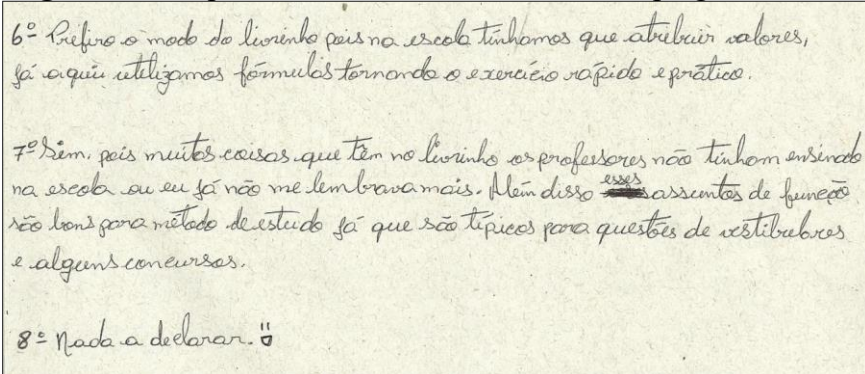 6º Prefiro o modo do livrinho pois na escola tinhamos que atribuir valores,
já aqui utilizamos fórmulas tornando o exercício rápido e prático.
7º Sim, pois muitas coisas que têm no livrinho os professores não tinham ensinado
na escola ou eu já não me lembrava mais. Além disso esses assuntos de função
são bons para método de estudo já que são típicos para questões de vestibulares
e alguns concursos.
8º Nada a declarar.